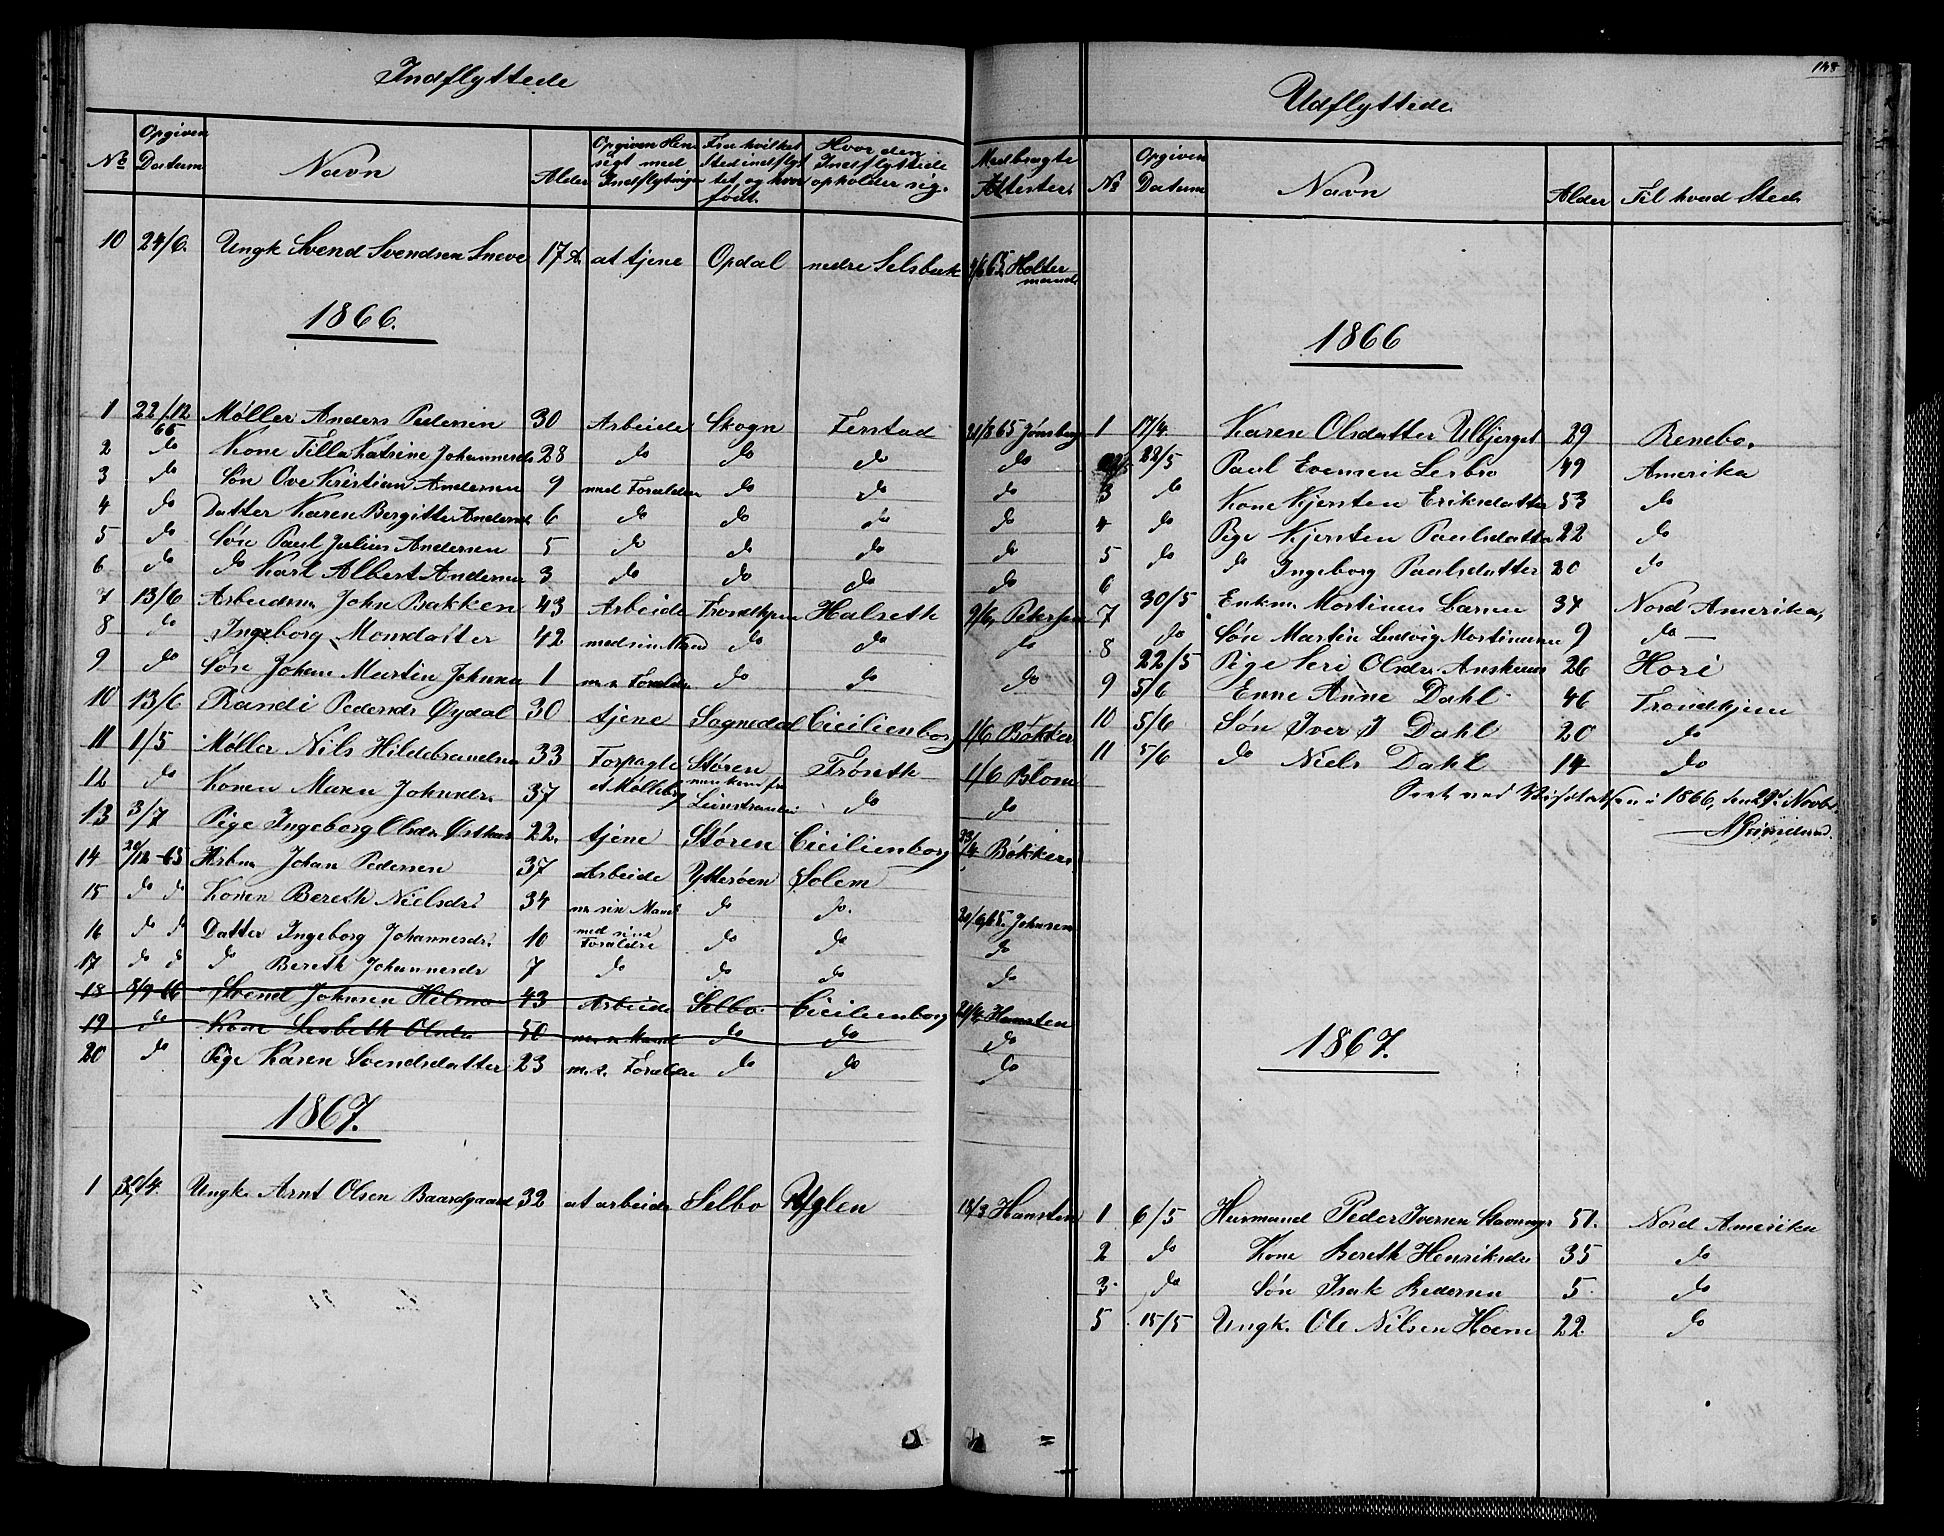 Indflyttede
No Opgiven Datum Navn Alder Opgiven Hensigt med Indflytningen Fra hvilket Sted indflyttet, og hvor født. Hvor den Indflyttede opholder sig. Medbragte Attester.
10 24/6. Ungk Svend Svendsen Sneve 17 A. at tjene Opdal nedre Selsbæk 65 Holtermand
1866.
1 22/12 65 Møller Anders Pedersen 30 Arbeide Skogn Ferstad 31/8 65 Jønsberg
2 do Kone Tilla Katrine Johannesdr 28 do do do do
3 do Søn Ove Kristian Andersen 9 med Forældre do do do
4 do Datter Karen Bergitte Andersd 6 do do do do
5 do Søn Paul Julius Andersen 5 do do do do
6 do do Karl Albert Andersen 3 do do do do
7 13/6 Arbeidsm John Bakken 43 Arbeide Trondhjem Halseth 9/6 Petersen
8 do Ingeborg Monsdatter 42 med sin Mand do do do
9 do Søn Johan Martin Johnsen 1 m. s. Forældre do do do
10 13/6 Randi Pedersdr Øydal 30 tjene Sognedal Cicilienborg 1/6 Bøkker
11 1/5 Møller Nils Hildebrandsen 33 Forpagte et Møllebrug Støren Trøneth 1/6 Blom
12 do Konen Maren Johnsdr. 37 men kom fra Leinstranden do do
13 3/7 Pige Ingeborg Olsdr Østhus 22. tjene Støren Cicilienborg 23/4 Bøkker
14 20/12-65 Arbm Johan Pedersen 37 Arbeide Ytterøen Solem
15 do do Konen Bereth Nielsdr 34 m sin Mand do do. 20/9 65. Johnsen
16 do do Datter Ingeborg Johannesdr. 10 med sine Forældre do do do
17 do do do Bereth Johannesdr 7 do do do do
18 8/9 66 Svend Johnsen Helmo 43 Arbeide Selbo. Cicilienborg 20/4 Hansten
19 do Kone Lisbeth Olsdr 50 m. s. Mand do do do
20 do Pige Karen Svendsdatter 23 m. s. Forældre do do do
1867.
1 30/4. Ungk. Arnt Olsen Baardgaard 32 at arbeide Selbo Uglen 18/3 Hansten
148
Udflyttede.
No Opgiven Datum Navn Alder Til hvad Sted
1866
1 17/4. Karen Olsdatter Ulbjerget 29 Renebo.
22/5 Paul Evensen Lesbro 49 Amerika
3 do Kone Kjersten Eriksdatter 53 do
4 do Pige Kjersten Paulsdatter 22 do
5 do do Ingeborg Paulsdatter 20 do
6
7 30/5 Enkm. Mortinus Larsen 37 Nord Amerika,
8 do Søn Martin Ludvig Mortinusen 9 do
22/5 Pige Seri Olsdr. Anshuus 26 Hori
9 5/6 Enke Anne Dahl 46 Trondhjem
10 5/6 Søn Iver J Dahl 20 do
11 5/6 do Niels Dahl 14 do
Seet ved Visitatsen i 1866, den 29d Novbr.
1867.
1 6/5 Huusmand Peder Iversen 51. Nord Amerika
2 do Kone Bereth Henriksdr 35 do
3 do Søn Isak Pedersen 5. do
5 15/5 Ungk. Ole Nilsen Hoem 22 do